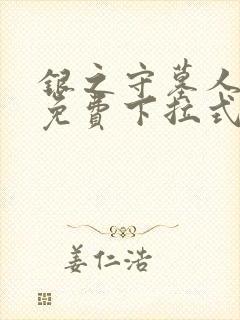 银之守墓人
免费下拉式
姜仁浩